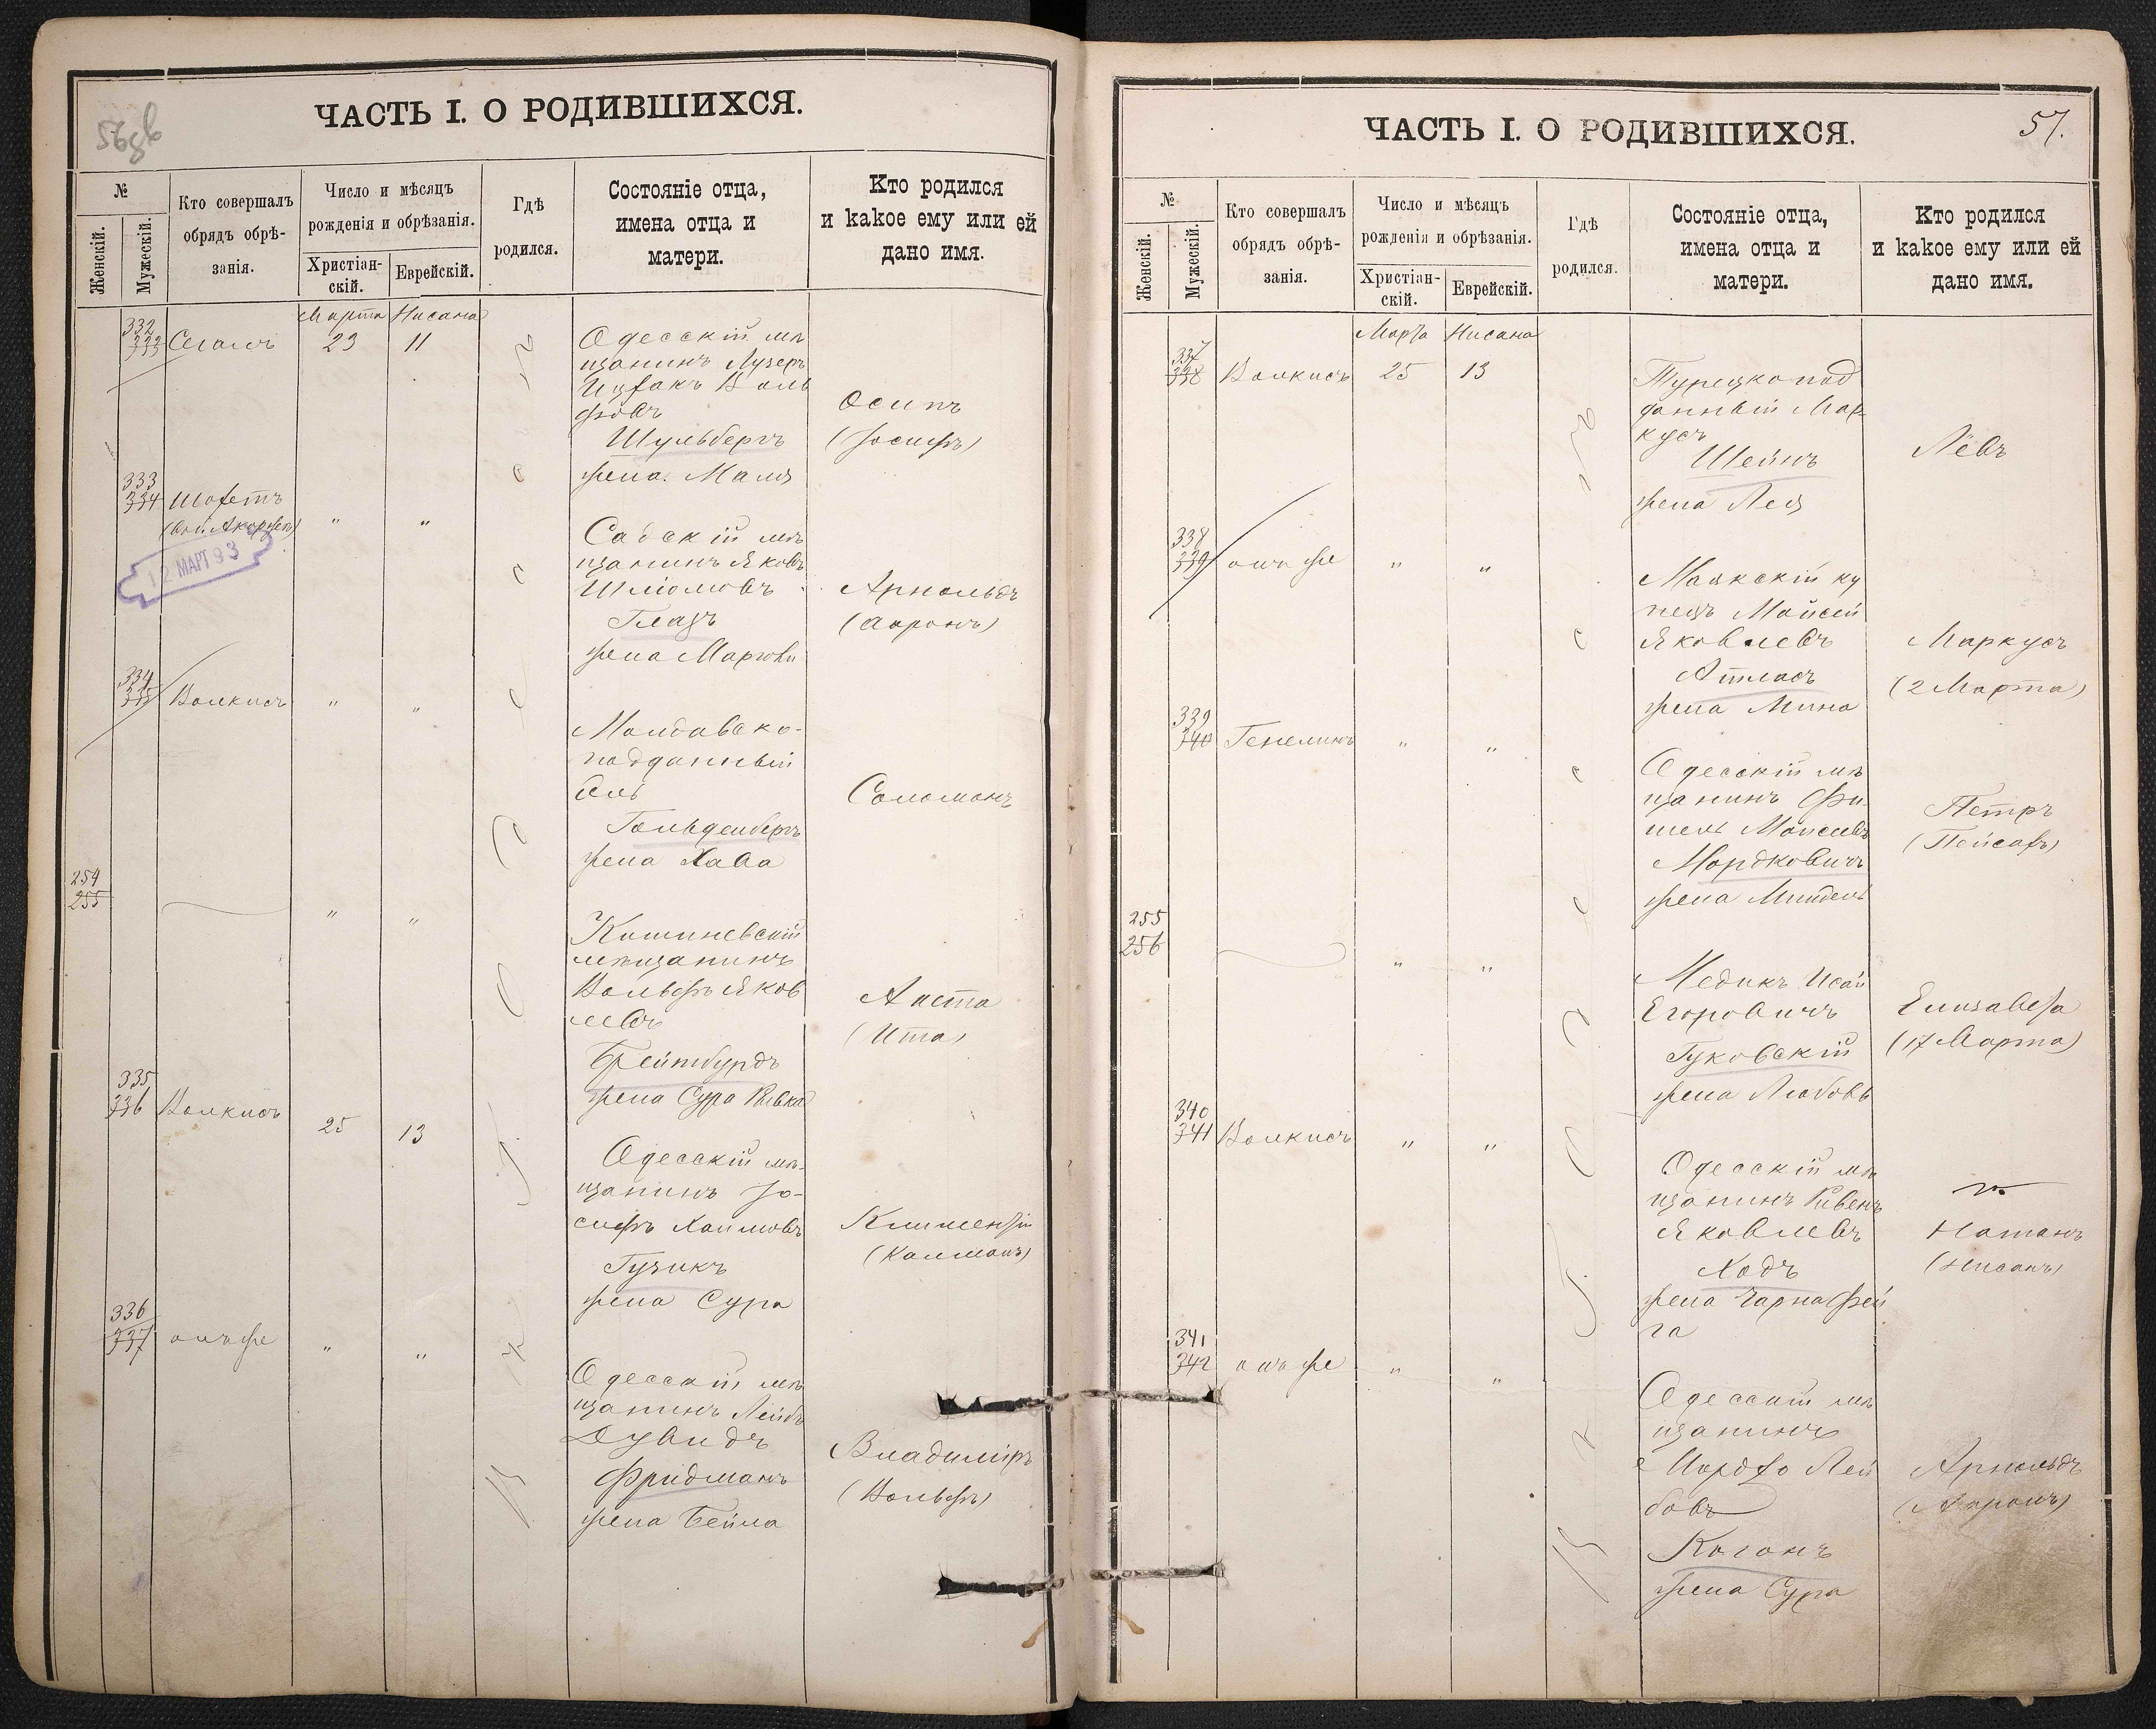 ЧАСТЬ I. О РОДИВШИХСЯ.
№
Женскій.
Мужескій.
Кто совершалъ
обрядъ обрѣ-
занія.
Число и мѣсяцъ
рожденія и обрѣзанія.
Христіан-
скій.
Еврейскій.
Гдѣ
родился.
Состояніе отца,
имена отца и
матери.
Кто родился
и какое ему или ей
дано имя.
Марта Нисана
332
333 Сегалъ 23 11
Одесскій мѣ
щанинъ Лузеръ
Ицхакъ Воль
фовъ
Шульбергъ
жена Маля
Осипъ
(Іосифъ)
333
334 Шохетъ
" "
12 МАРТ 93
Садскій мѣ
щанинъ Яковъ
Шліомовъ
Глазъ
жена
Арнольдъ
(Ааронъ)
334
335 Волкисъ " "
Молдавско-
подданный
Гольденбергъ
жена Хава
Соломонъ
254
255
" "
Кишиневскій
мѣщанинъ
Вольфъ Яков
левъ
Брейтбурдъ
жена Сура Ривка
Анета
(Ита)
335
336 Волкисъ 25 13
Одесскій мѣ-
щанинъ Іо-
сифъ Хаимовъ
Гузикъ
жена Сура
Климентій
(Калманъ)
336
337 онъ же " "
Одесскій мѣ
щанинъ Лейбъ
Дувидъ
Фридманъ
жена Бейла
Владиміръ
(Вольфъ)
ЧАСТЬ I. О РОДИВШИХСЯ.
57.
№
Женскій.
Мужескій.
Кто совершалъ
обрядъ обрѣ-
занія.
Число и мѣсяцъ
рожденія и обрѣзанія.
Христіан-
скій.
Еврейскій.
Гдѣ
родился.
Состояніе отца,
имена отца и
матери.
Кто родился
и какое ему или ей
дано имя.
Марта Нисана
337
338 Волкисъ 25 13
Турецкопод
данный Мар
кусъ
Шейнъ
жена Лея
Лёвъ
338
339 онъ же " "
Маякскій ку
пецъ Мойсей
Яковлевъ
Атласъ
жена Мина
Маркусъ
(2 Марта)
339
340 Генелинъ " "
Одесскій мѣ
щанинъ Фи-
шель Моисеевъ
Мордковичъ
жена
Петръ
(Пейсахъ)
255
256
" "
Медикъ Исай
Егоровичъ
Гуковскій
жена Любовь
Елизавета
(17 Марта)
340
341 Волкисъ " "
Одесскій мѣ
щанинъ Рувенъ
Яковлевъ
Ходъ
жена Чарна Фей
га
Натанъ
(Нисанъ)
341
342 онъ же " "
Одесскій мѣ
щанинъ
Мордхо Лей
бовъ
Коганъ
жена Сура
Арнольдъ
(Ааронъ)